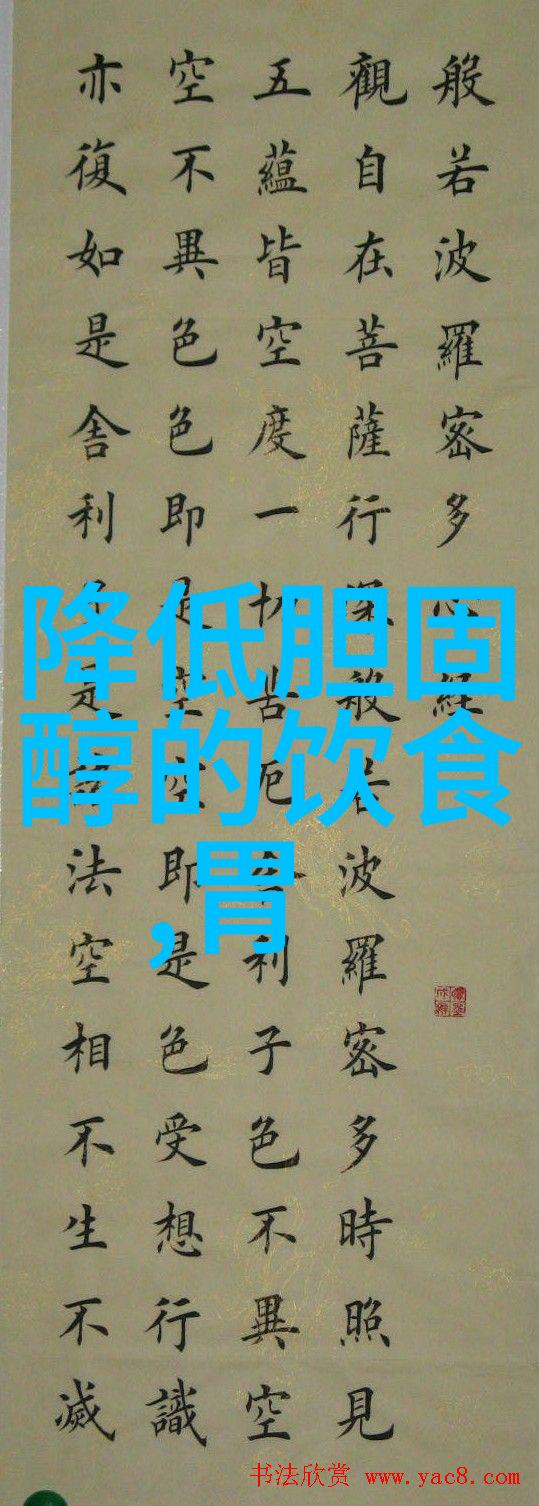 般若波羅密多心經
觀自在菩薩行深般若波羅密多時照見
五蘊皆空度一切苦厄舍利子色不異空
空不異色色即是空空即是色受想行識
亦復如是舍利子是諸法空相不生不滅
降低胆固
醇的饮食
,胃
书法欣赏 www.yac8.com